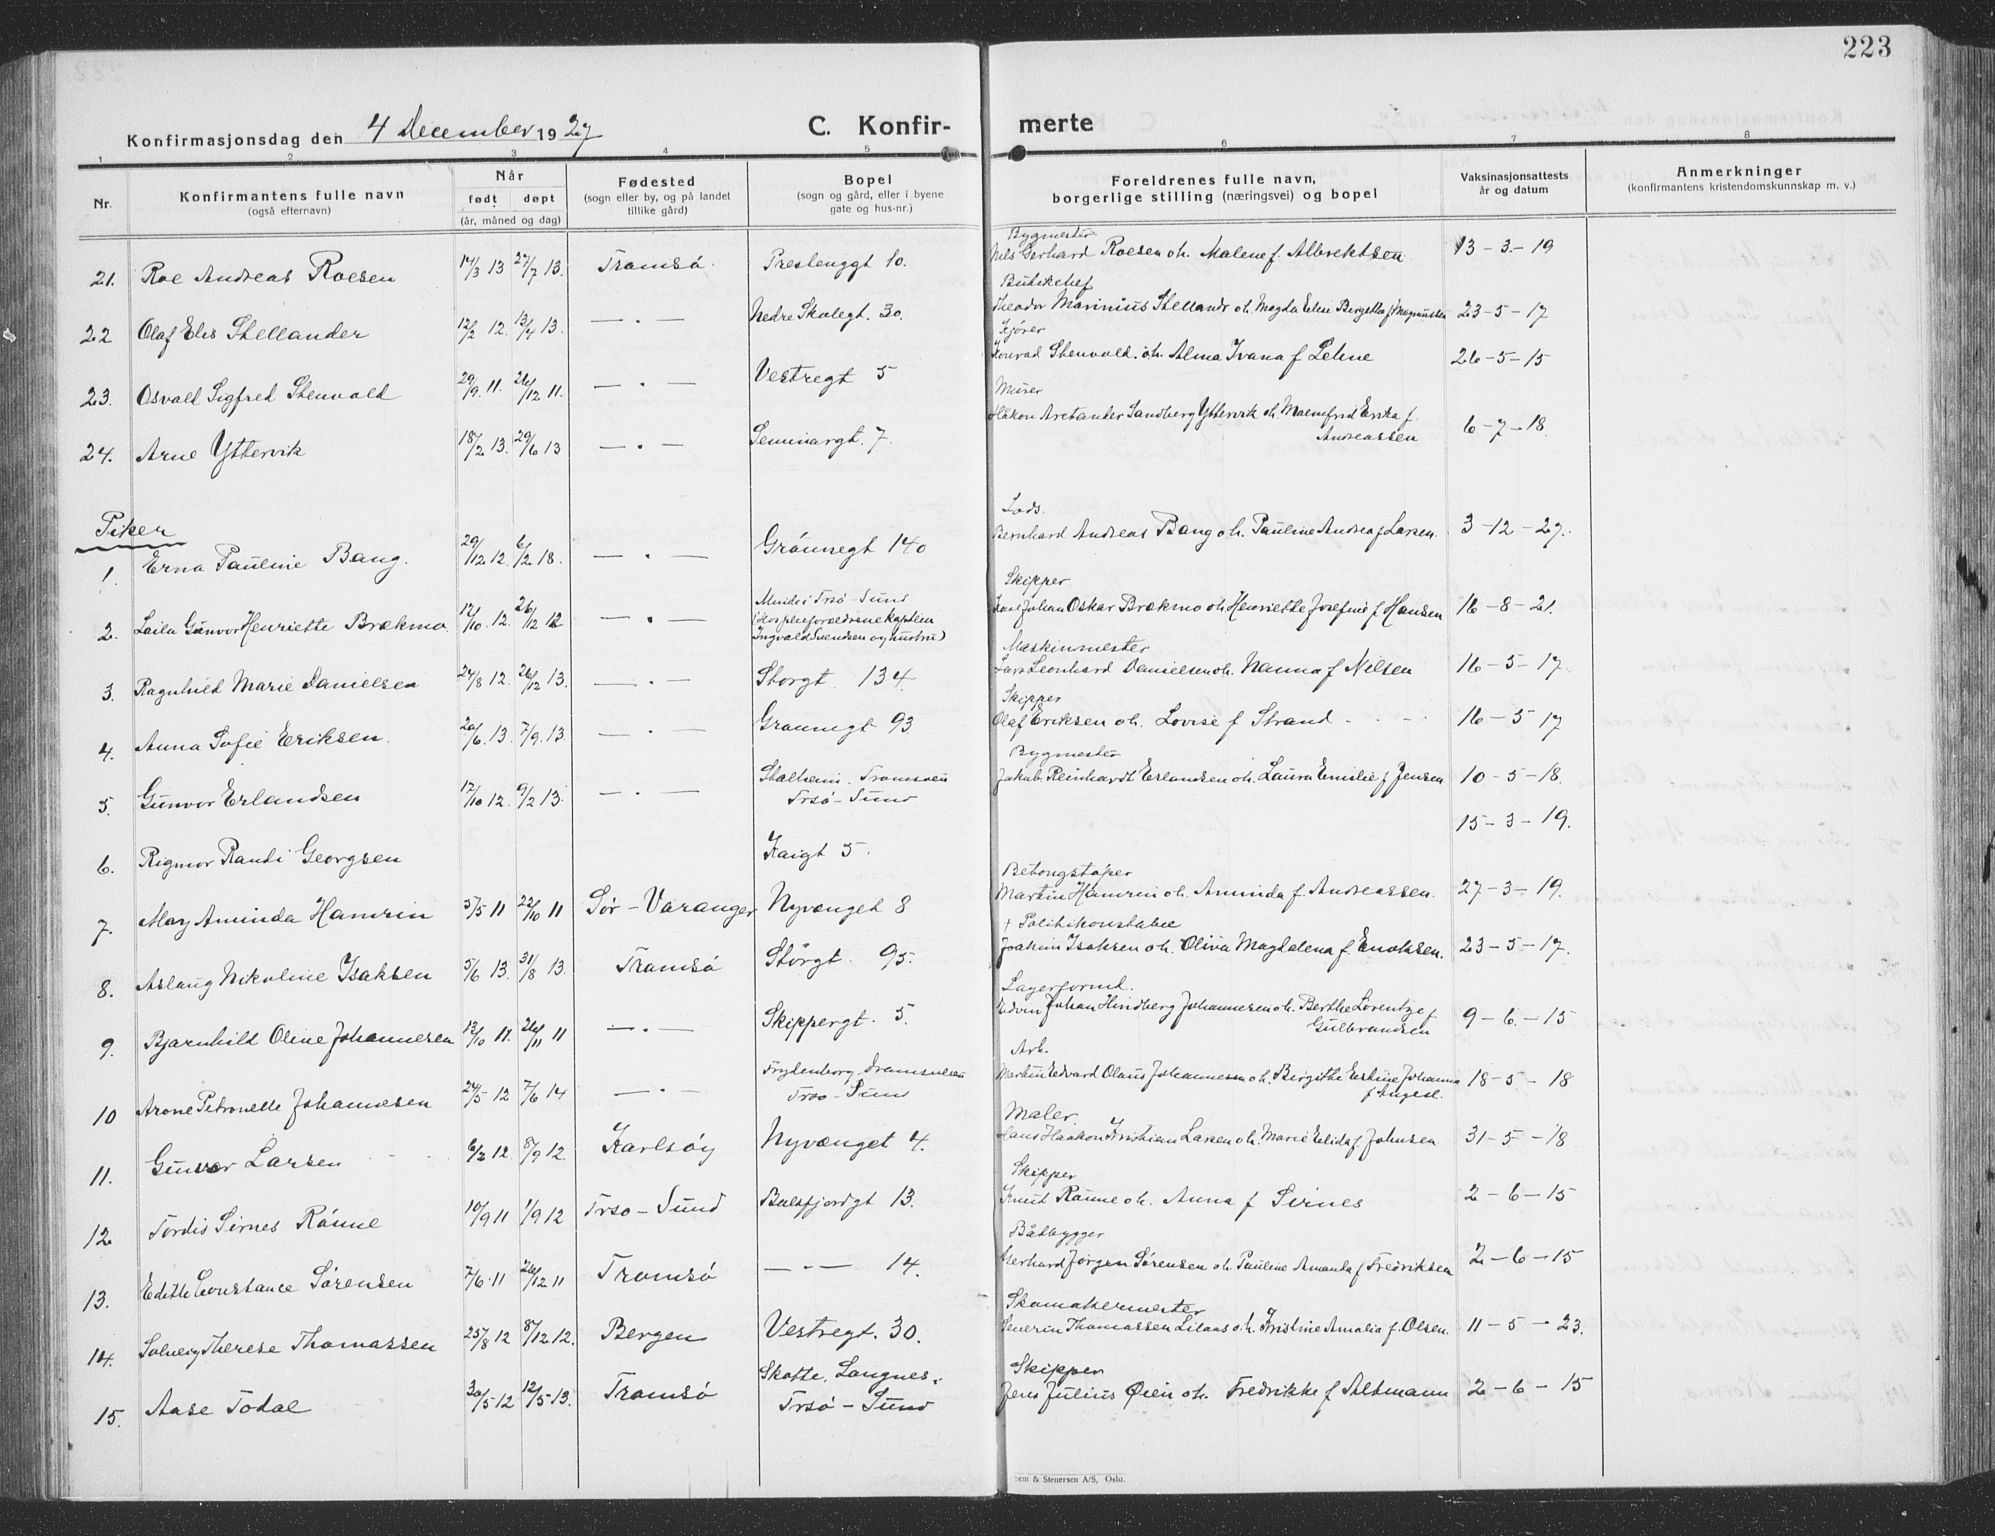 223
Konfirmasjonsdag den 4 December 1927
C. Konfirmerte
1 2 3 4 5 6 7 8
Nr.
Konfirmantens fulle navn
(også efternavn)
Når
født døpt
(år, måned og dag)
Fødested
(sogn eller by, og på landet
tillike gård)
Bopel
(sogn og gård, eller i byene
gate og hus-nr.)
Foreldrenes fulle navn,
borgerlige stilling (næringsvei) og bopel
Vaksinasjonsattests
år og datum
Anmerkninger
(konfirmantens kristendomskunnskap m. v.)
Bygmester
21. Roe Andreas Roesen 14/3 13 27/7 13. Tromsø. Prestenggt 10. Nils Gerhard Roesen o h. Malene f. Albrektsen 13-3-19
Butikchef
22 Olaf Elis Stellander 12/2 12. 13/4 13. — . — Nedre Skolegt. 30. Theodor Marinius Stellandr o h. Magda Eline Bergitta f. Magnussen 23-5-17
Kjører
23. Osvald Sigfred Stenvold 29/9. 11. 26/12 11. — . — Vestregt 5 Konrad Stenvold. o h. Alma Ivana f Lehne 26-5-15
Murer
24. Arne Yttervik 18/2 13. 29/6 13 — . — Seminargt. 7. Håkon Aretander Sandberg Yttervik o h. Malmfrid Erika f.
Andreassen 6-7-18.
Piker
Lods.
1. Erna Pauline Bang. 29/12 12. 6/2 18. — . — Grønnegt 140 Bernhard Andreas Bang o h. Pauline Andrea f Larsen. 3-12-27.
Skipper
2. Laila Gunvor Henriette Brækmo. 17/10. 12. 26/12 12 — . — Trsø-Sund
Ingvald Svendsen og hustru) Johan Oskar Brækmo o h Henriette Josefine f Hansen 16-8-21.
Maskinmester
3. Ragnhild Marie Danielsen 24/8 12. 26/12 13. — . — Storgt. 134. Lars Leonhard Danielsen o h. Nanna f Nilsen 16-5-17.
Skipper
4. Anna Sofie Eriksen. 20/6. 13. 7/9. 13. — . — Grønnegt 93. Olaf Eriksen o h. Lovise f Strand 16-5-17
Bygmester
5. Gunvor Erlandsen 17/10 12. 9/2 13. — . — Stalheim. Tromsøen
Trsø-Sund Jakob Reinhardt Erlandsen o h. Laura Emilie f Jensen 10-5-18.
6. Rigmor Randi Georgsen Kaigt 5. 15-3-19.
Betongstøper
7. May Aminda Hamrin 5/5 11 22/10 11 Sør-Varanger Nyvænget 8 Martin Hamrin o h. Aminda f. Andreassen. 27-3-19.
+ Politikonstabel
8. Aslaug Nikoline Isaksen 5/6 13. 31/8 13. Tromsø Storgt. 95. Joakim Isaksen o h. Oliva Magdalena f. Enoksen. 23-5-17.
Lagerformd.
9. Bjarnhild Oline Johannesen 13/10 11. 26/11 11 — . — Skippergt. 5. Edvin Johan Hindberg Johannesen o h. Berthe Lorentze f
Gulbrandsen 9-6-15
Arb.
10 Arone Petronelle Johannesen 24/5 12 7/6 14 — . — Frydenborg. Tromsøen
Trsø-Sund Martin Edvard Olaus Johannessen o h. Birgithe Johanna
f Angell. 18-5-18
Maler.
11. Gunvor Larsen 6/2 12. 8/9 12. Karlsøy Nyvænget 4. Hans Haakon Kristian Larsen o h. Marie Elida f. Johnsen 31-5-18.
Skipper
12. Tordis Sirnes Rønne 10/9 11 1/9 12 Trsø-Sund Balsfjordgt 13. Knut Rønne o h. Anna f Sirnes 2-6-15
Båtbygger
13. Edith Constance Sørensen 7/6. 11 26/12 11 Tromsø — . — 14. Gerhard Jørgen Sørensen o h. Pauline Amanda f Fredriksen 2-6-15
Skomakermester
14. Solveig Therese Thomassen 25/8 12 8/12 12. Bergen Vestregt. 30. Severin Thomassen Lilaas o h. Kristine Amalia f. Olsen. 11-5-23.
Skipper
15. Aase Todal 30/5 12 12/5 13. Tromsø Skatte, Langnes.
Trsø-Sund Jens Julius Øien o h. Fredrikke f Altmann 2-6-15
& Stenersen A/S, Oslo.